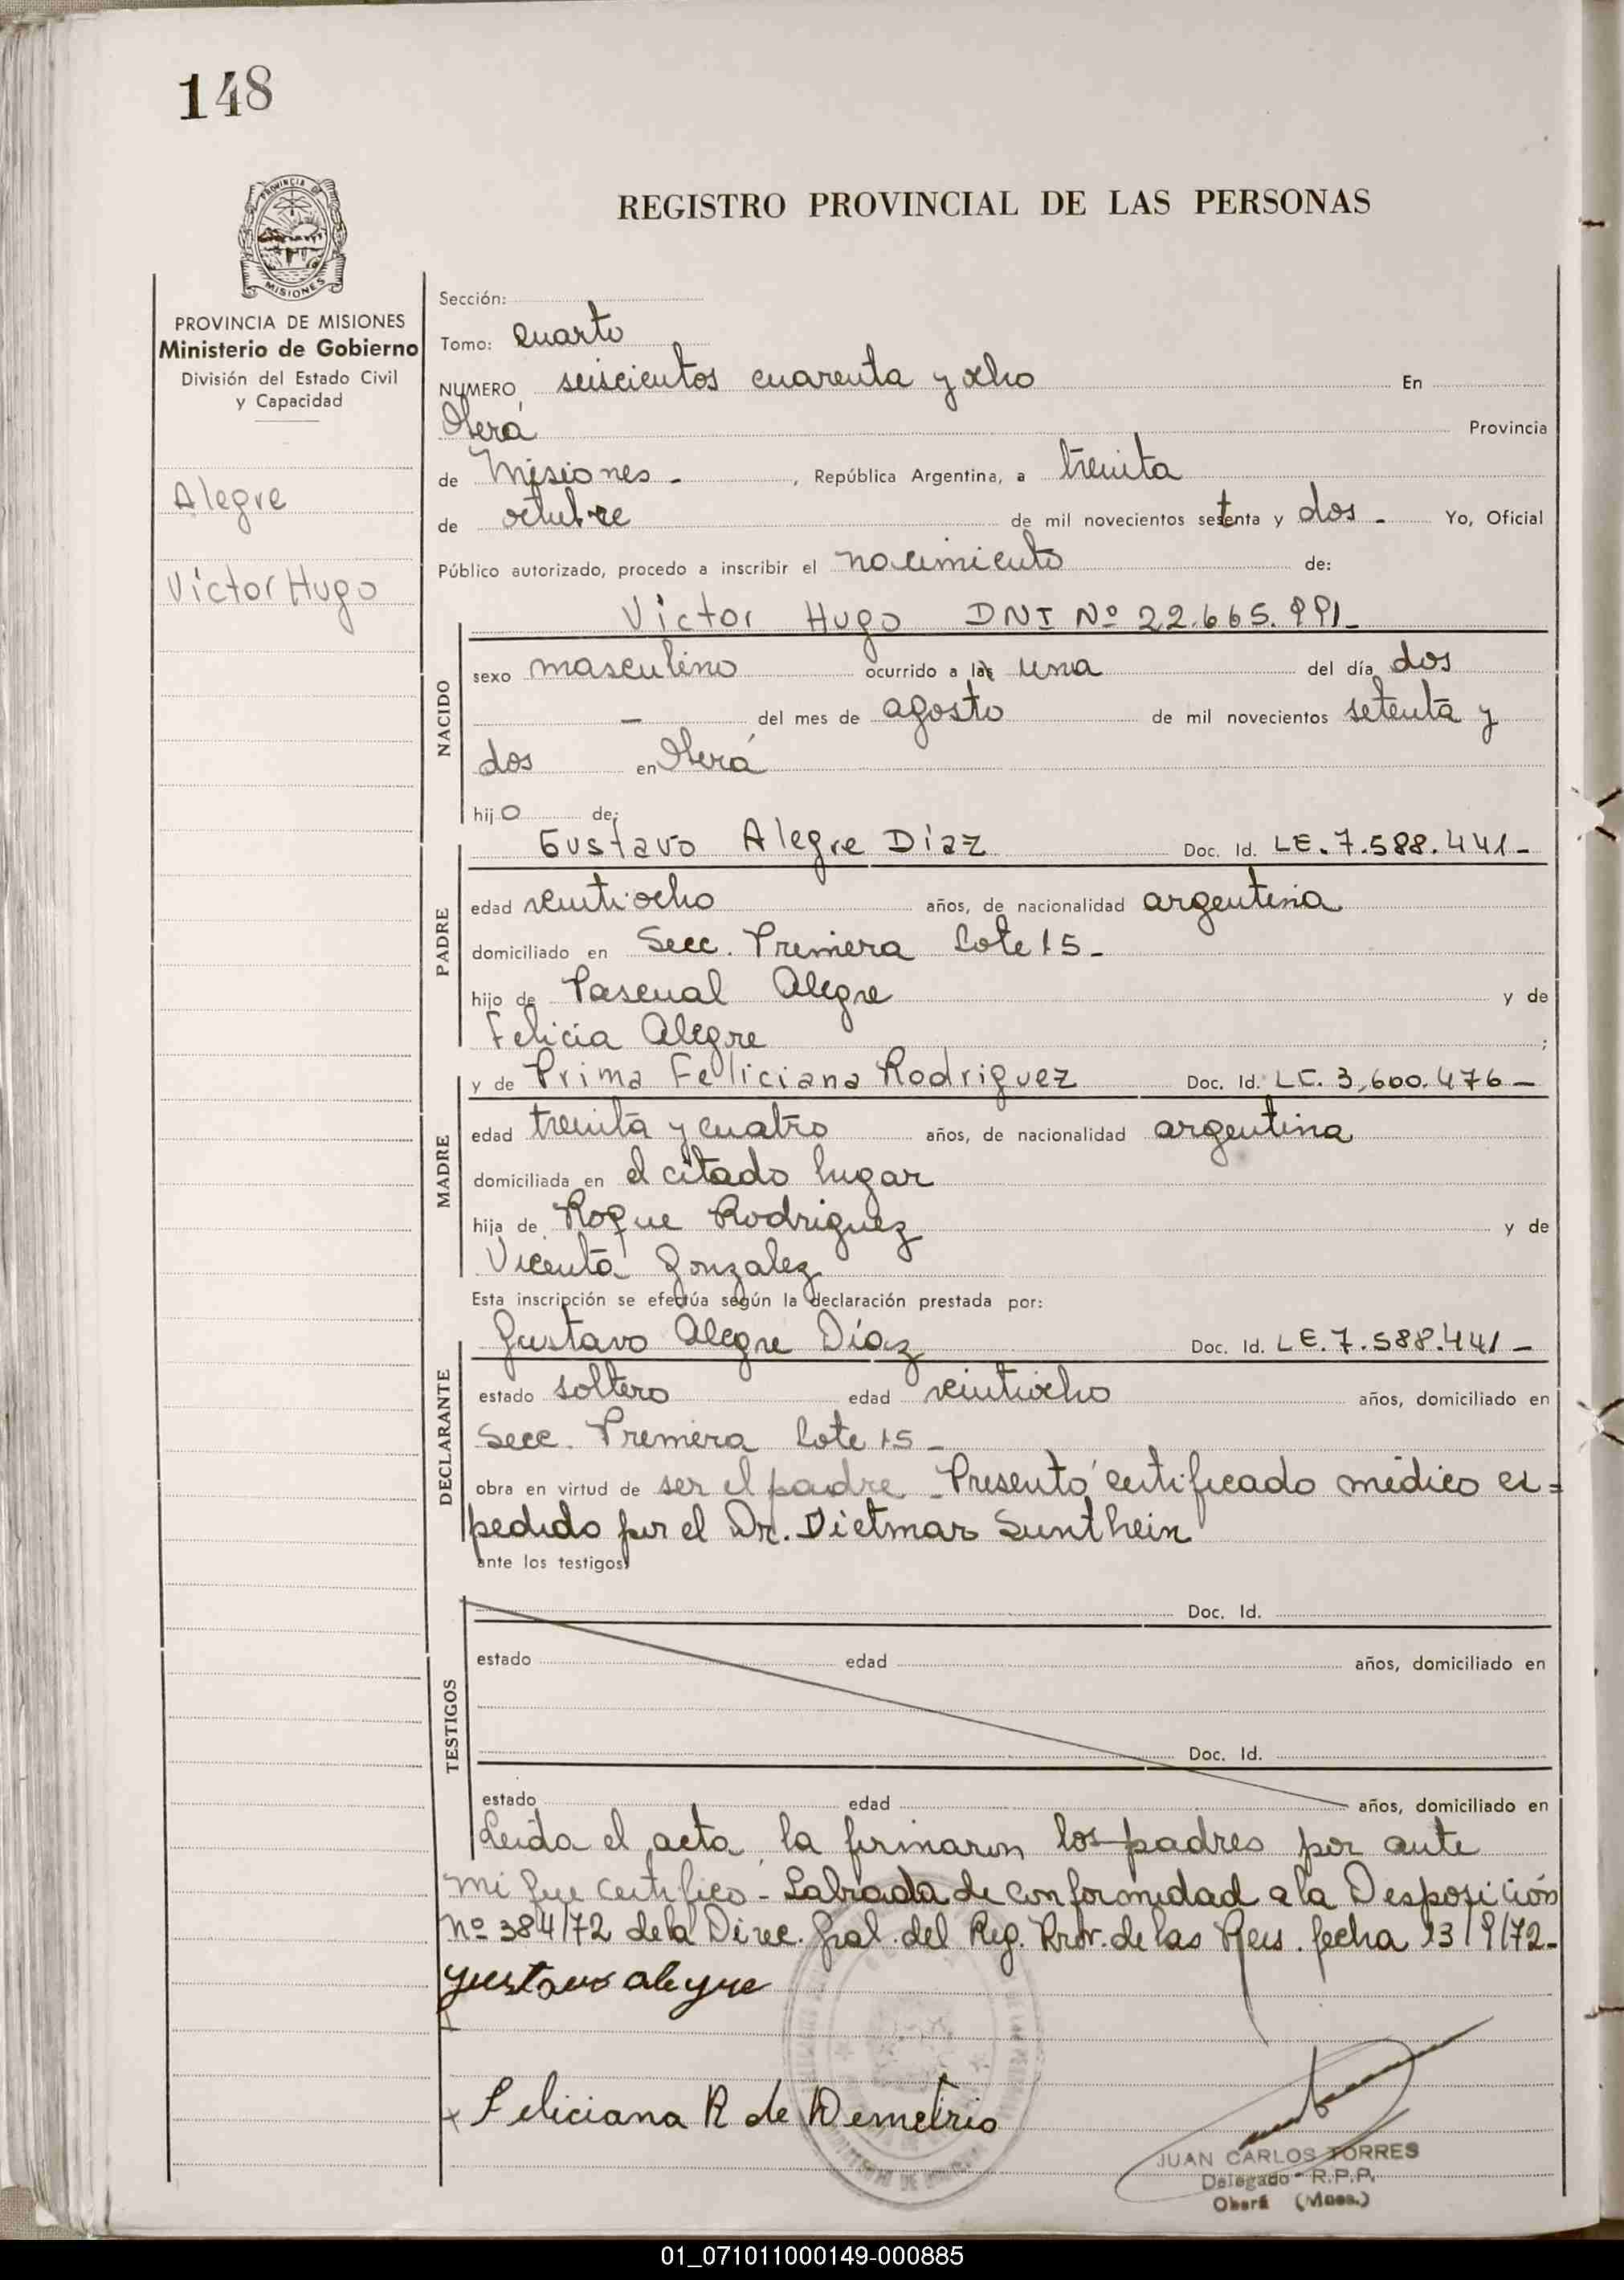 148
REGISTRO PROVINCIAL DE LAS PERSONAS
PROVINCIA DE
MISIONES
PROVINCIA DE MISIONES
Ministerio de Gobierno
División del Estado Civil
y Capacidad
Alegre
Victor Hugo
Sección:
Tomo: Cuarto
NUMERO seiscientos cuarenta y ocho En
Oberá Provincia
de Misiones - , República Argentina, a treinta
de octubre de mil novecientos setenta y dos - Yo, Oficial
Público autorizado, procedo a inscribir el nacimiento de:
Victor Hugo DNI Nº 22.665.991-
NACIDO
sexo masculino ocurrido a la una del día dos
- del mes de agosto de mil novecientos setenta y
dos en Oberá
hijo de:
PADRE
Gustavo Alegre Diaz Doc. Id. LE. 7.588.441-
edad veintiocho años, de nacionalidad argentina
domiciliado en Secc. Primera Lote 15-
hijo de Pascual Alegre y de
Felicia Alegre ;
MADRE
y de Prima Feliciana Rodriguez Doc. Id. LC. 3.600.476-
edad treinta y cuatro años, de nacionalidad argentina
domiciliada en el citado lugar
hija de Roque Rodriguez y de
Vicenta Gonzalez
Esta inscripción se efectúa según la declaración prestada por:
DECLARANTE
Gustavo Alegre Díaz Doc. Id. LE. 7.588.441-
estado soltero edad veintiocho años, domiciliado en
Secc. Primera Lote 15-
obra en virtud de ser el padre - Presentó certificado médico ex=
pedido por el Dr. Dietmar Sunthein
ante los testigos
TESTIGOS
Doc. Id.
estado edad años, domiciliado en
Doc. Id.
estado edad años, domiciliado en
Leida el acta, la firmaron los padres por ante
mi que certifico - Labrada de conformidad a la Disposición
Nº 384/72 de la Direc. Gral. del Reg. Prov. de las Pers. fecha 13/9/72-
Gustavo alegre
x Feliciana R de Demetrio
JUAN CARLOS TORRES
Delegado R.P.P.
Oberá (Mnes.)
01_071011000149-000885